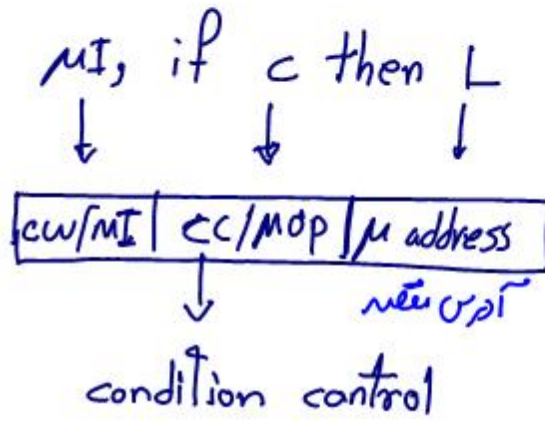 μI, if c then L
cw/μI | cc/μop | μ address
آدرس بعدی
condition control